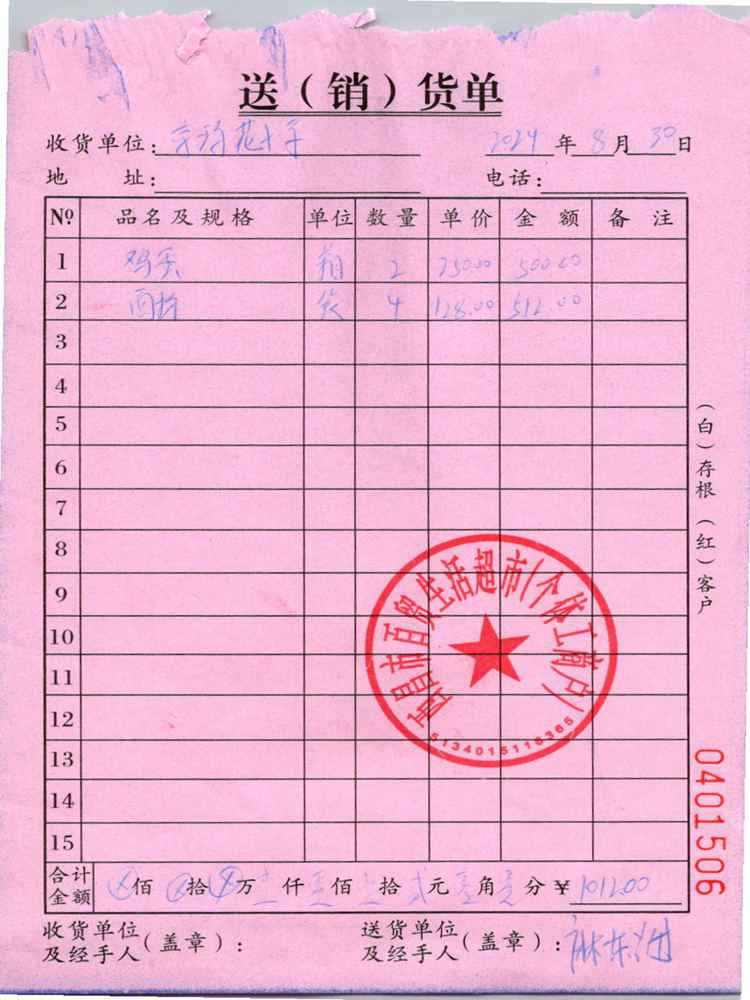 送（销）货单
收货单位：
2024年8月30日
地 址：
电话：
№ 品名及规格 单位 数量 单价 金额 备注
1 鸡蛋 箱 2 250.00 500.00
2 袋 4 128.00 512.00
3
4
5
6
7
8
9
10
11
12
13
14
15
合计金额 佰 拾 万 仟 佰 拾 贰元 角 分 ¥1012.00
收货单位及经手人（盖章）：
送货单位及经手人（盖章）：
（白）存根（红）客户
0401506
西昌市百贸生活超市(个体工商户)
5134015116365